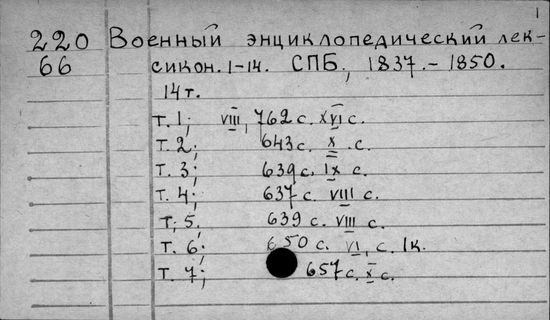 1
220 Военный энциклопедический лек-
66 сикон. 1-14. СПБ, 1837.-1850.
14т.
т. 1; VIII, 762с. XVI с.
т. 2; 643с. X .с.
т. 3; 639с. IX с.
т. 4; 637с. VIII с.
т. 5; 639с. VIII с.
т. 6; 650 с. VI, с. 1к.
т. 7; 657с. X с.